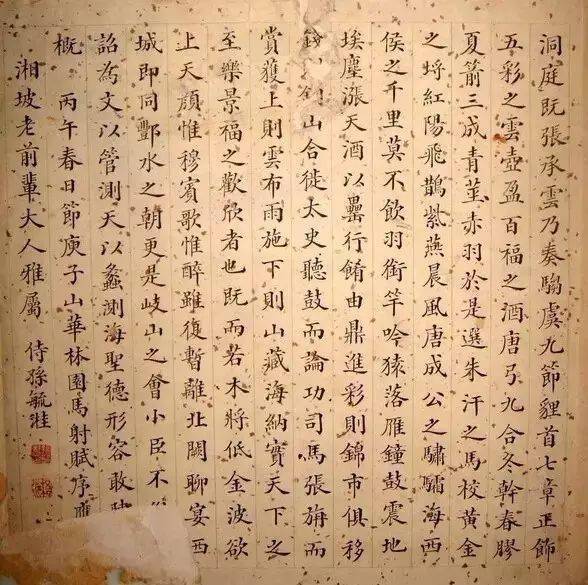 洞庭既張承雲乃奏騶虞九節貍首七章正飾
五彩之雲壺盈百福之酒唐弓九合冬幹春膠
夏箭三成青莖赤羽於是選朱汗之馬校黃金
之埒紅陽飛鵲紫燕晨風唐成公之驌驦海西
侯之千里莫不飲羽銜竿吟猿落雁鐘鼓震地
埃塵漲天酒以罍行餚由鼎進彩則錦市俱移
山合徙太史聽鼓而論功司馬張旃而
賞獲上則雲布雨施下則山藏海納實天下之
至樂景福之歡欣者也既而若木將低金波欲
上天顏惟穆賓歌惟醉雖復暫離北闕聊宴西
城即同酆水之朝更是岐山之會小臣不
詔為文以管測天以蠡測海聖德形容敢
概 丙午春日節庾子山華林園馬射賦序應
湘坡老前輩大人雅屬 侍孫毓溎